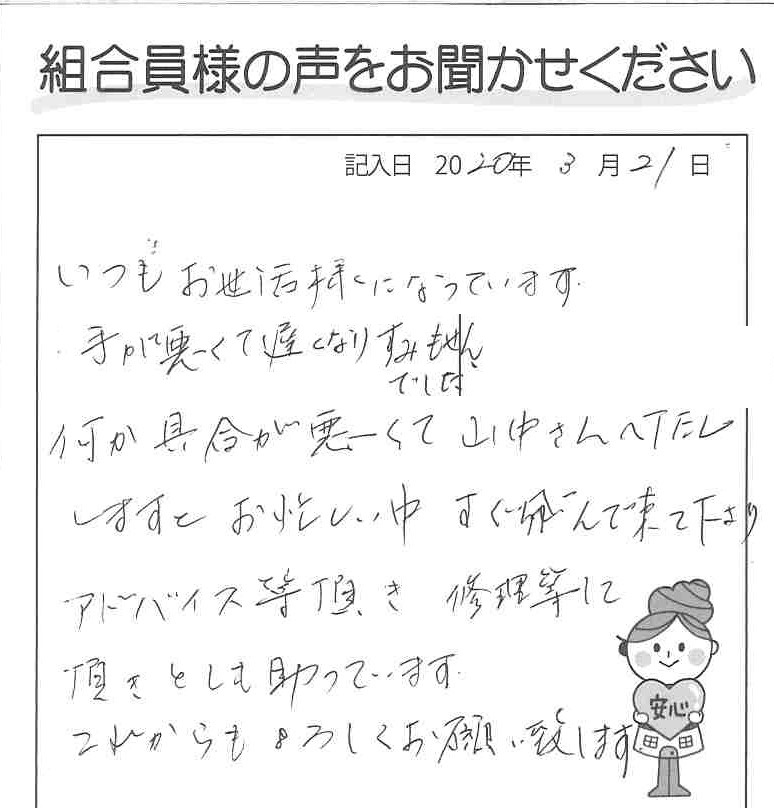 組合員様の声をお聞かせください
記入日 2020年 3月21日
いつもお世話様になっています.
手が悪くて遅くなりすみません
でした
何か具合が悪くて山中さんへTELし
しますと お忙しい中 すぐ飛んで来て下さり
アドバイス等頂き 修理等して
頂きとても助っています.
これからもよろしくお願い致します
安心